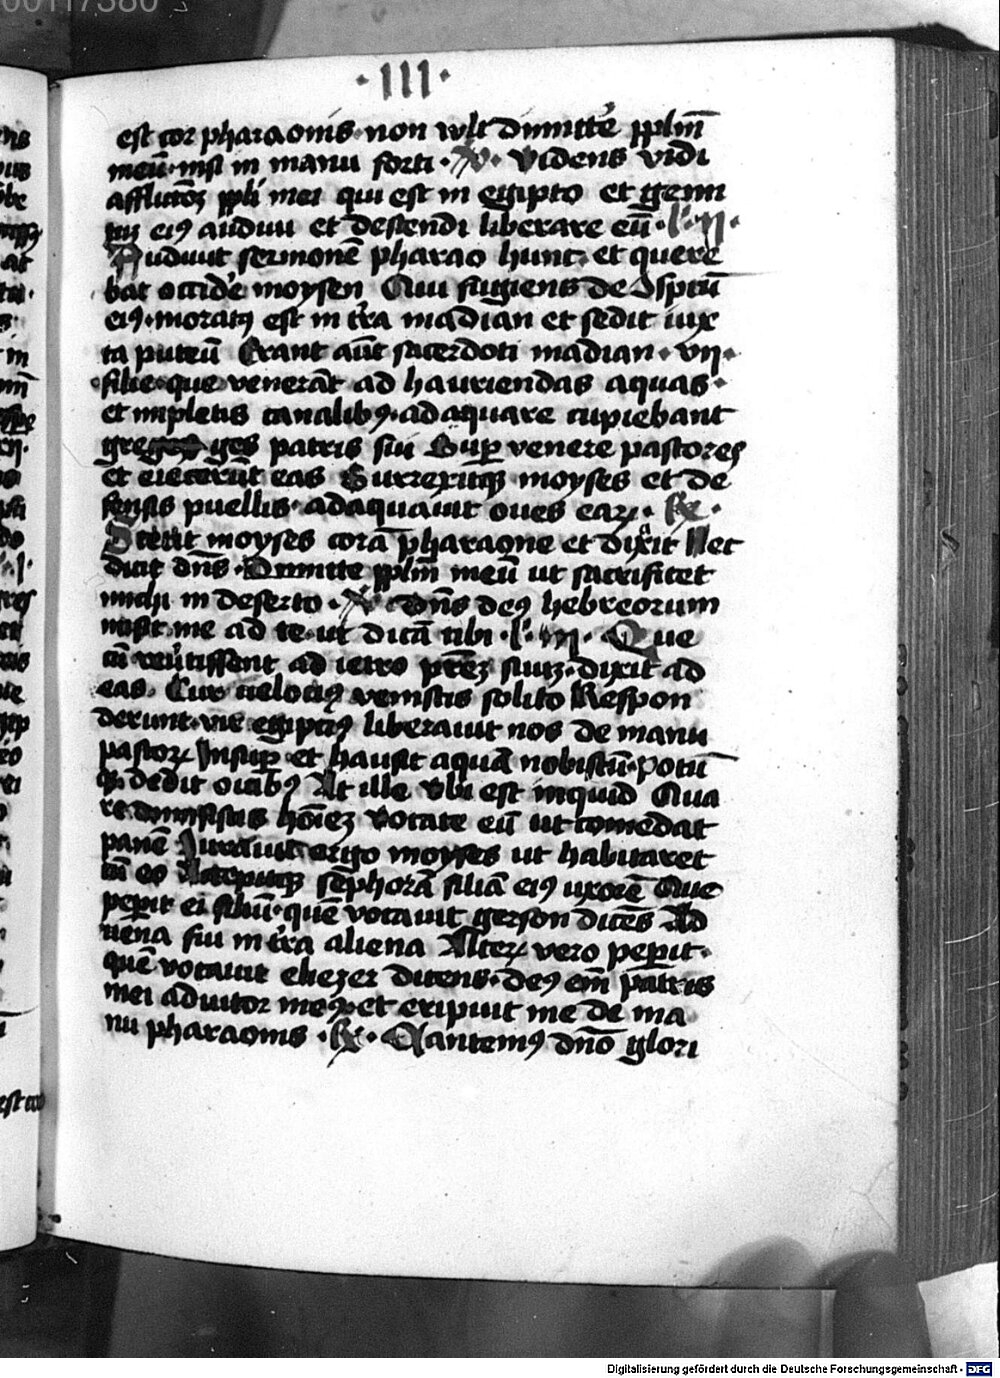 ·III·
est cor pharaonis non wlt dimittē pplm̄
meū· nisi in manu forti · V̸· Videns vidi
afflictōꝫ ppli mei qui est in egipto et gemi
tū eiꝯ audiui et descendi liberare eū · l'· ıı·
Audiuit sermonē pharao hunc· et quere
bat occidē moysen Qui fugiens de ꝯspctū
eiꝯ· moratꝯ est in tr̄a madian et sedit iux
ta puteū Erant aūt sacerdoti madian · vii·
filie· que venerāt ad hauriendas aquas·
et impletis canalibꝯ· adaquare cupiebant
greges ges patris sui Suꝑ venere pastores
et eiecerūt eas Surrexitqꝫ moyses et de
fensis puellis· adaquauit oues eaꝝ · ℟ ·
Stetit moyses corā pharaone et dixit Hec
dicit dn̄s· Dimitte pplm̄ meū ut sacrificet
michi in deserto · V̸ dn̄s deꝯ hebreorum
misit me ad te· ut dicā tibi · l'· ııı· Que
cū reūtissent ad ietro prēꝫ suuꝫ· dixit ad
eas· Cur velociꝯ venistis solito Respon
derunt· vir egiptiꝯ liberauit nos de manu
pastoꝝ Insuꝑ et hausit aquā nobiscū· potū
qꝫ dedit ouibꝯ At ille Vbi est inquid Qua
re dimisistis hoīeꝫ Vocate eū ut comedat
panē Iurauit ergo moyses ut habitaret
cū eo Accepitqꝫ sēphorā filiā eiꝯ uxorē Que
peperit ei filiū· quē vocauit gerson dicēs Ad
uēna fui in tr̄a aliena Alteꝝ vero peꝑit·
quē vocauit eliezer dicens· deꝯ em̄ patris
mei adiutor meꝯ· et eripuit me de ma
nu pharaonis · ℟ · Cantemꝯ dn̄o glori
est cor
Digitalisierung gefördert durch die Deutsche Forschungsgemeinschaft - DFG